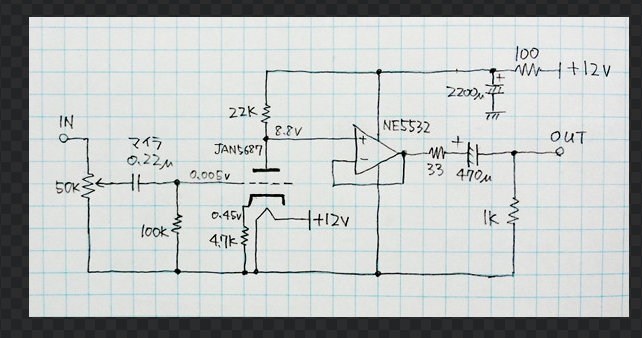 100
+12V
2200μ
+
22K
8.8V
NE5532
IN
マイラ
0.22μ
JAN5687
+
-
+
OUT
50K
0.005V
33
470μ
0.45V
+12V
1K
100K
4.7K